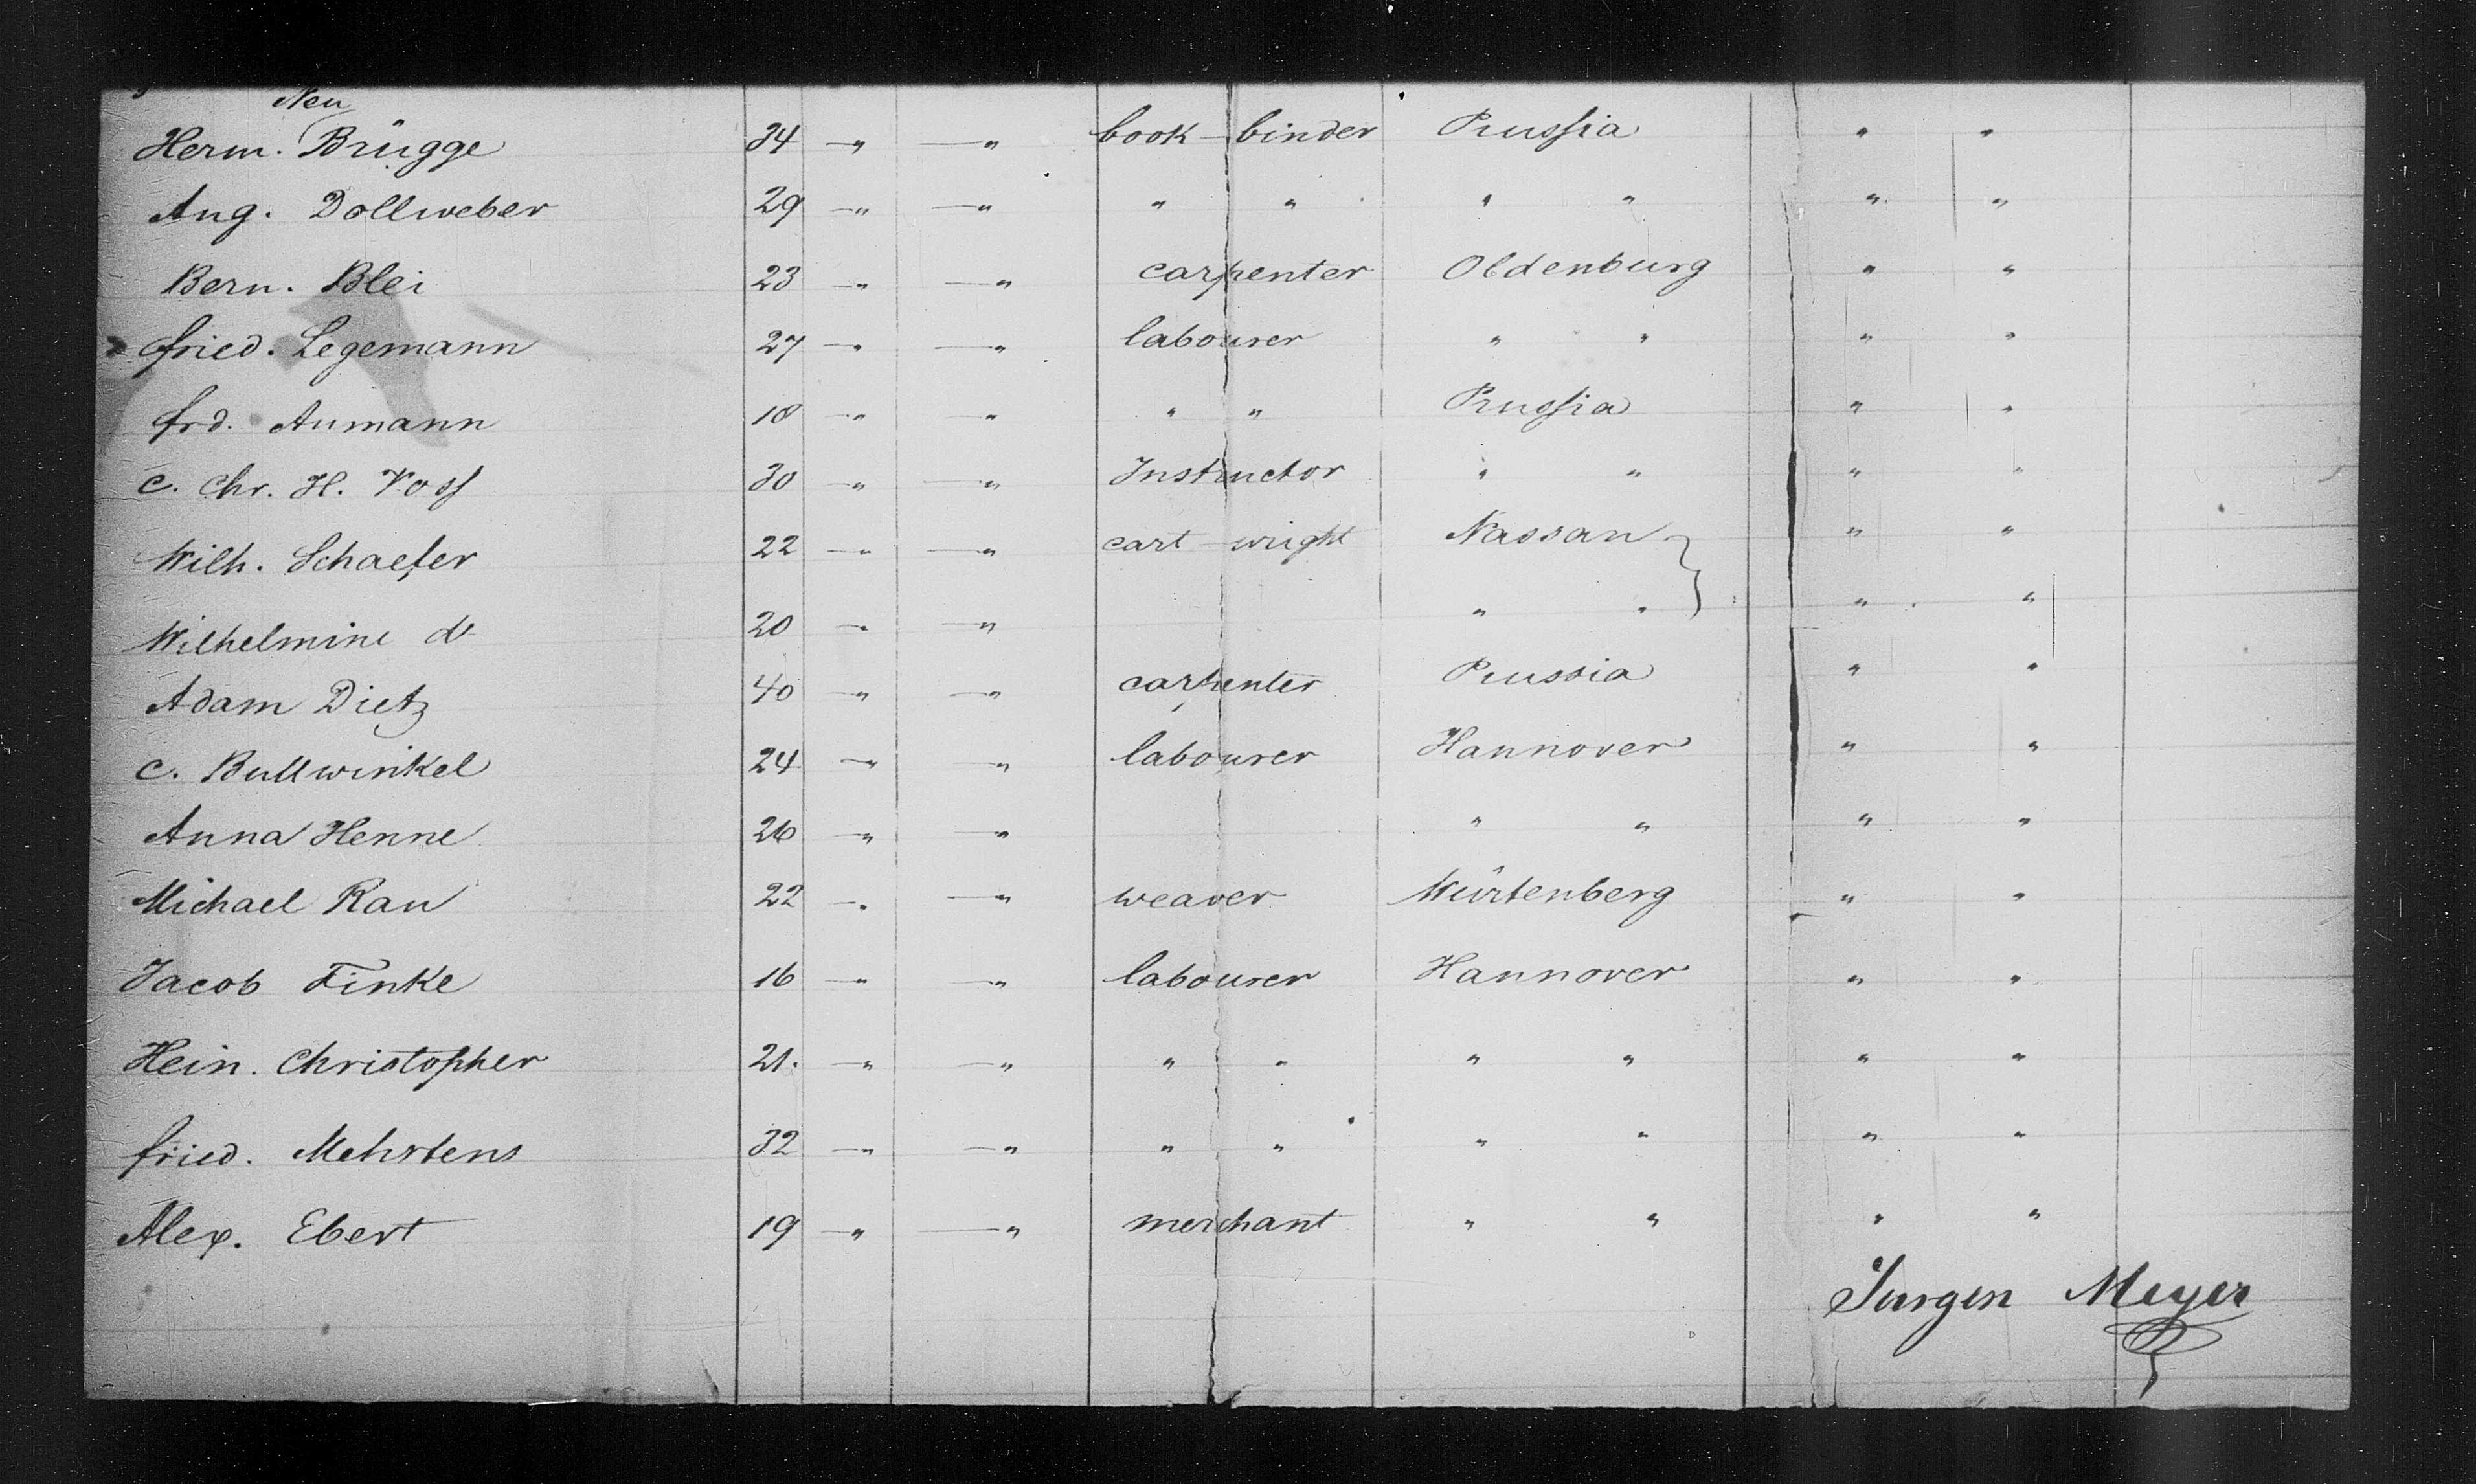 Neu
Herm. Brügge 34 —" —" book-binder Prussia " "
Aug. Dollweber 29 —" —" " " " " " "
Bern. Blei 23 —" —" carpenter Oldenburg " "
fried. Legemann 27 —" —" labourer " " " "
frd. Aumann 18 —" —" " " Prussia " "
C. Chr. H. Voss 30 —" —" Instructor " " " "
Wilh. Schaefer 22 —" —" cart-wright Nassau } " "
Wilhelmine do 20 —" —" " " " "
Adam Dietz 40 —" —" carpenter Prussia " "
C. Bullwinkel 24 —" —" labourer Hannover " "
Anna Henne 26 —" —" " " " "
Michael Rau 22 —" —" weaver Würtenberg " "
Jacob Finke 16 —" —" labourer Hannover " "
Hein. Christopher 21. —" —" " " " " " "
fried. Mehrtens 32 —" —" " " " " " "
Alex. Ebert 19 —" —" merchant " " " "
Jürgen Meyer